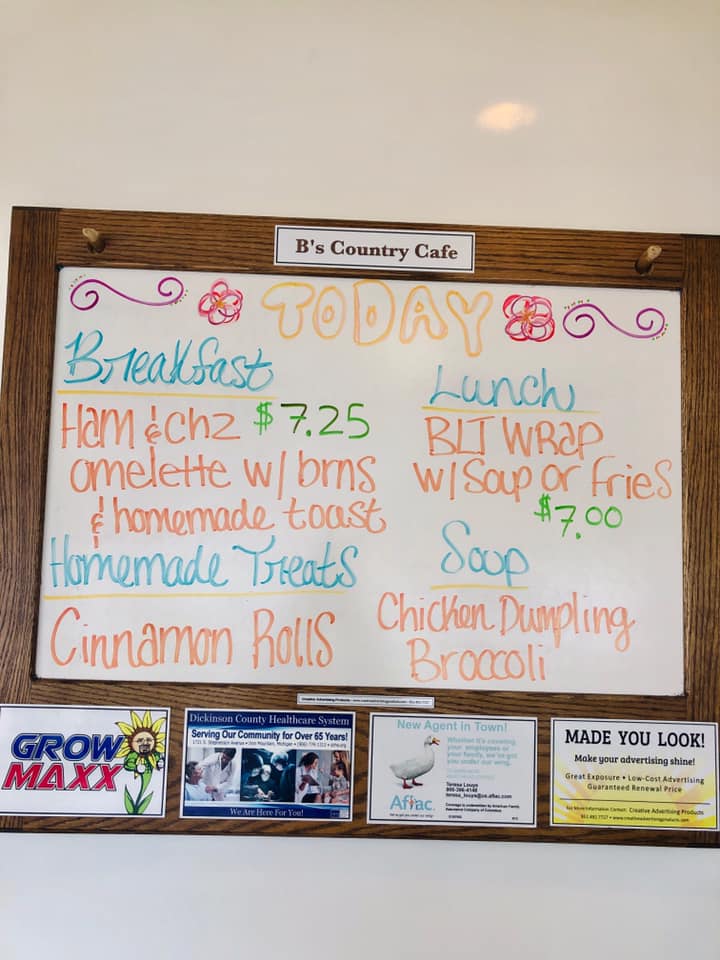 B's Country Cafe
TODAY
Breakfast
Ham & chz $7.25
omelette w/ brns
& homemade toast
Homemade Treats
Cinnamon Rolls
Lunch
BLT WRAP
w/ Soup or fries
$7.00
Soup
Chicken Dumpling
Broccoli
GROW
MAXX
Dickinson County Healthcare System
Serving Our Community for Over 65 Years!
We Are Here For You!
New Agent in Town!
Whether it's covering
your employees or
your family, we've got
you under our wing.
Teresa Louys
Aflac
MADE YOU LOOK!
Make your advertising shine!
Great Exposure • Low-Cost Advertising
Guaranteed Renewal Price
For More Information Contact: Creative Advertising Products